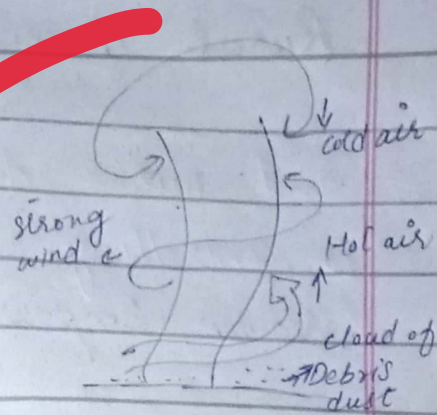 cold air
strong
wind
Hot air
cloud of
Debris
dust